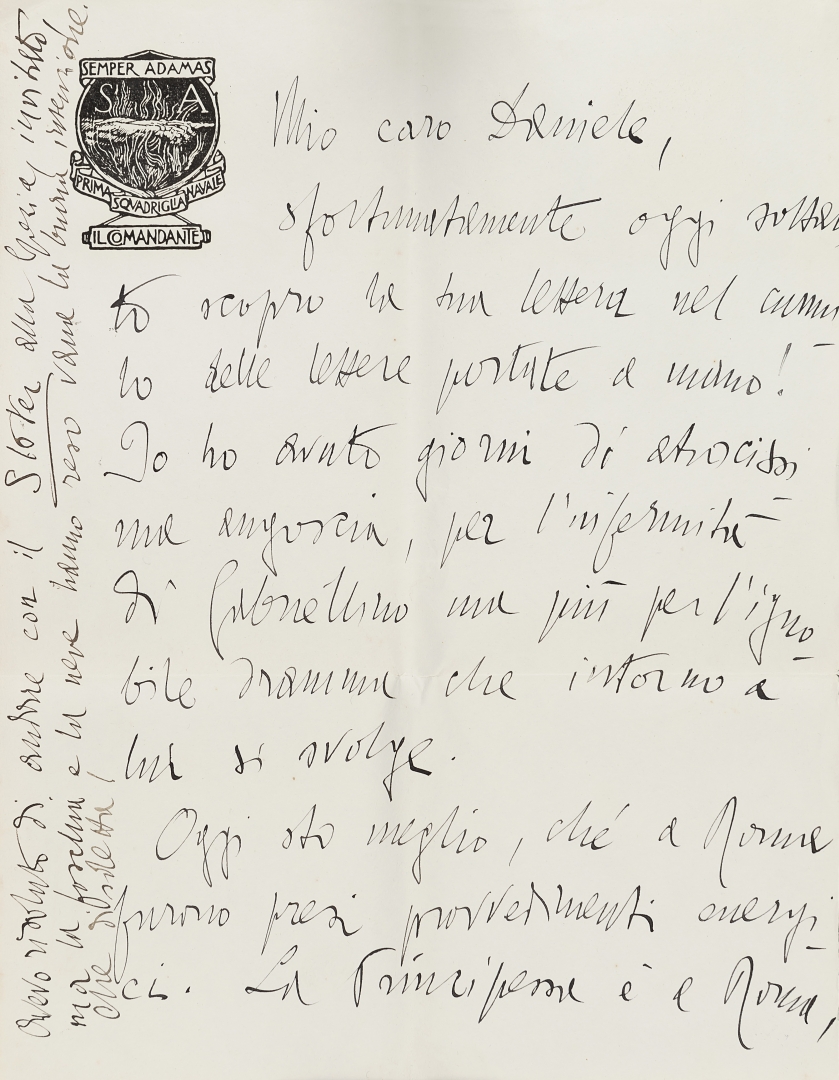 SEMPER ADAMAS
S A
PRIMA SQVADRIGLIA NAVALE
IL COMANDANTE
Mio caro Daniele,
sfortunatamente oggi soltan
to scopro la sua lettera nel cumu
lo delle lettere portate a mano!
Io ho avuto giorni di atrocissi
ma angoscia, per l'infermità
di Gabriellino ma più per l'igno
bile dramma che intorno a
lui si svolge.
Oggi sto meglio, ché a Roma
furono presi provvedimenti energi
ci. La Principessa è a Roma,
Avevo risoluto di andare con il Sloter alla Spezia, invitato
ma la foschia e la neve hanno reso vana la buona intenzione.
che